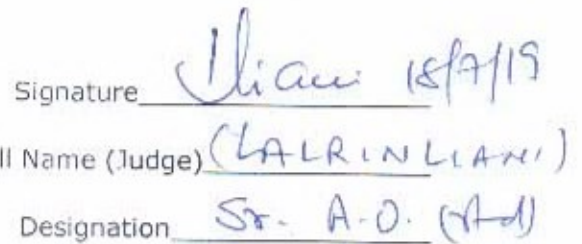 Signature 18/7/19
ll Name (Judge) (LALRINLIANI)
Designation Sr. A.O. (Ad)